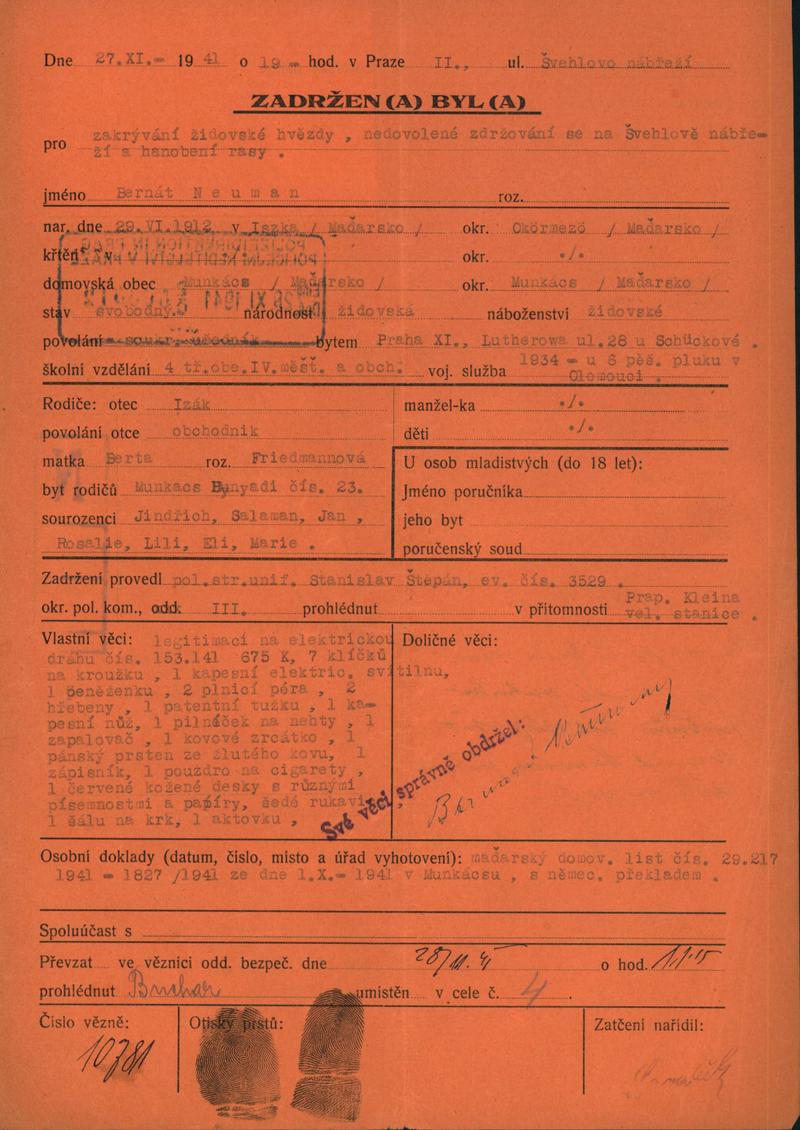 Dne 27.XI.- 19 41 o 19 - hod. v Praze II., ul. Švehlovo nábřeží
ZADRŽEN(A) BYL(A)
pro zakrývání židovské hvězdy , nedovolené zdržování se na Švehlově nábře-
ží a hanobení rasy .
jméno Bernát Neuman roz.
nar. dne 29.VI.1912 v Iszka / Maďarsko / okr. Okörmezö / Maďarsko /
křtěn v okr. ./.
domovská obec Munkács / Maďarsko / okr. Munkács / Maďarsko /
stav svobodný. národnost židovská náboženství židovské
povolání soukr. úředník bytem Praha XI., Lutherowa ul.28 u Schückové .
školní vzdělání 4 tř.obe.IV.měšť. a obch. voj. služba 1934 - u 6 pěš. pluku v
Olomouci .
Rodiče: otec Izák manžel-ka ./.
povolání otce obchodnik děti ./.
matka Berta roz. Friedmannová U osob mladistvých (do 18 let):
byt rodičů Munkacs Bunyadi čís. 23. Jméno poručníka
sourozenci Jindřich, Salaman, Jan , jeho byt
Rosalie, Lili, Eli, Marie . poručenský soud
Zadržení provedl pol.str.unif. Stanislav Štěpán, ev. čís. 3529 .
okr. pol. kom., odd. III. prohlédnut v přítomnosti Prap. Kleina
vel. stanice .
Vlastní věci: legitimaci na elektrickou Doličné věci:
dráhu čís. 153.141 675 K, 7 klíčků
na kroužku , 1 kapesní elektric. svítilnu,
1 peněženku , 2 plnicí péra , 2
hřebeny , 1 patentní tužku , 1 ka-
pesní nůž, 1 pilníček na nehty , 1
zapalovač , 1 kovové zrcátko , 1
pánský prsten ze žlutého kovu, 1
zápisník, 1 pouzdro na cigarety ,
1 červené kožené desky s různými
písemnostmi a papíry, šedé rukavi
1 šálu na krk, 1 aktovku ,
Své věci správně obdržel:
Osobní doklady (datum, číslo, místo a úřad vyhotovení): maďarský domov. list čís. 29.217
1941 - 1827 /1941 ze dne 1.X.- 1941 v Munkácsu , s němec. překladem .
Spoluúčast s
Převzat ve věznici odd. bezpeč. dne 28/11. 41 o hod. 11.15
prohlédnut Bruhar umístěn v cele č. 4 .
Číslo vězně: Otisky prstů: Zatčení nařídil:
10781